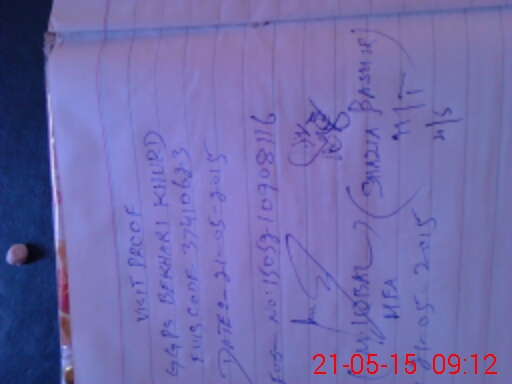 VISIT PROOF
GGPS BEKHARI KHURD
EMIS CODE- 37410623
DATE:- 21-05-2015
NO: 15052-10908116
(M. IQBAL)
MEA
21-05-2015
(SHAZIA BASHIR)
21-05-15 09:12